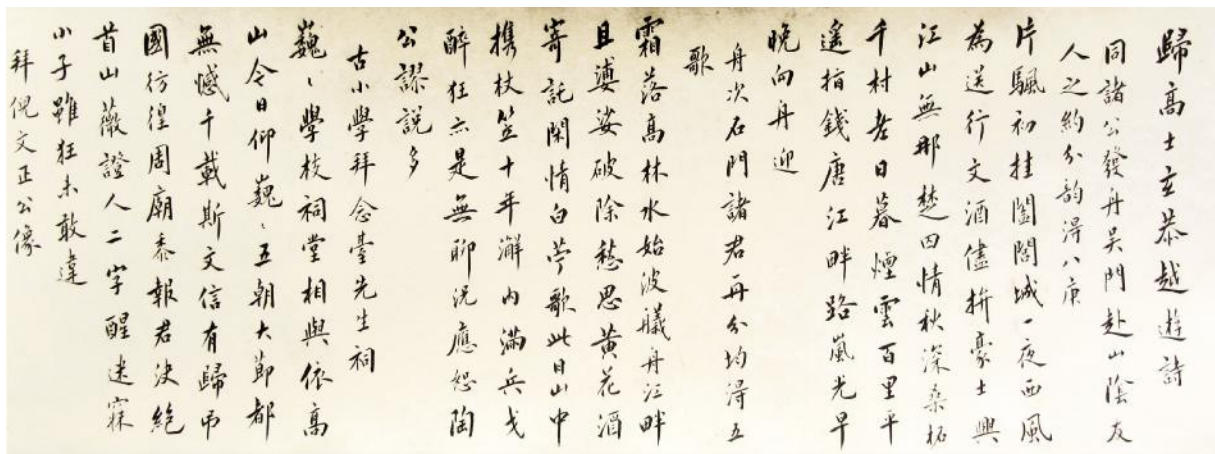 歸高士玄恭越遊詩
同諸公發舟吳門赴山陰友
人之約分韵得八庚
片颿初挂闔閭城一夜西風
為送行文酒儘拚豪士興
江山無那楚囚情秋深桑柘
千村老日暮煙雲百里平
遙指錢唐江畔路嵐光早
晚向舟迎
舟次石門諸君再分均得五
歌
霜落高林水始波艤舟江畔
且婆娑破除愁思黃花酒
寄託閑情白苧歌此日山中
携杖笠十年澥内滿兵戈
醉狂亦是無聊況應恕陶
公謬說多
古小學拜念臺先生祠
巍〻學校祠堂相與依高
山今日仰巍〻五朝大節都
無憾千載斯文信有歸弔
國彷徨周廟黍報君決絕
首山薇證人二字醒迷寐
小子雖狂未敢違
拜倪文正公像